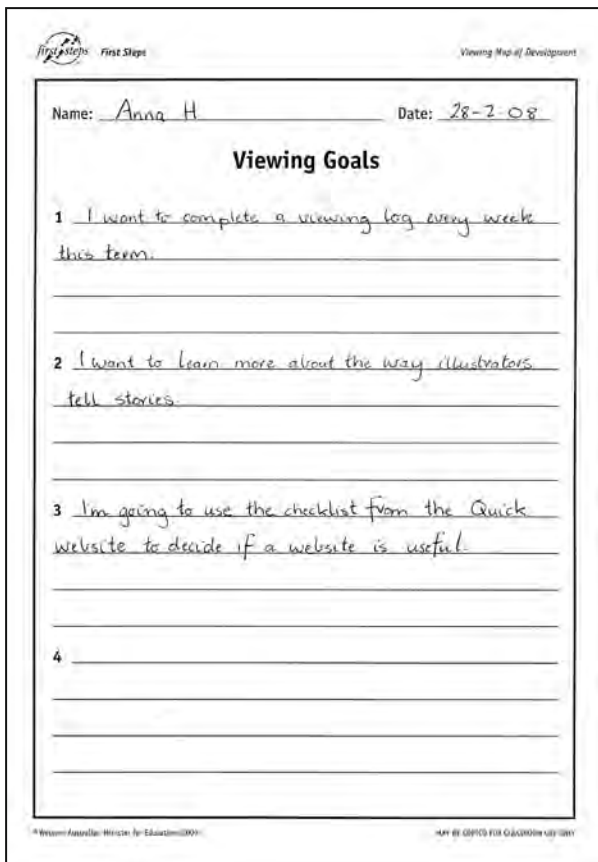 first steps First Steps Viewing Map of Development
Name: Anna H Date: 28-2-08
Viewing Goals
1 I want to complete a viewing log every week
this term.
2 I want to learn more about the way illustrators
tell stories.
3 I'm going to use the checklist from the Quick
website to decide if a website is useful.
4
© Western Australian Minister for Education MAY BE COPIED FOR CLASSROOM USE ONLY